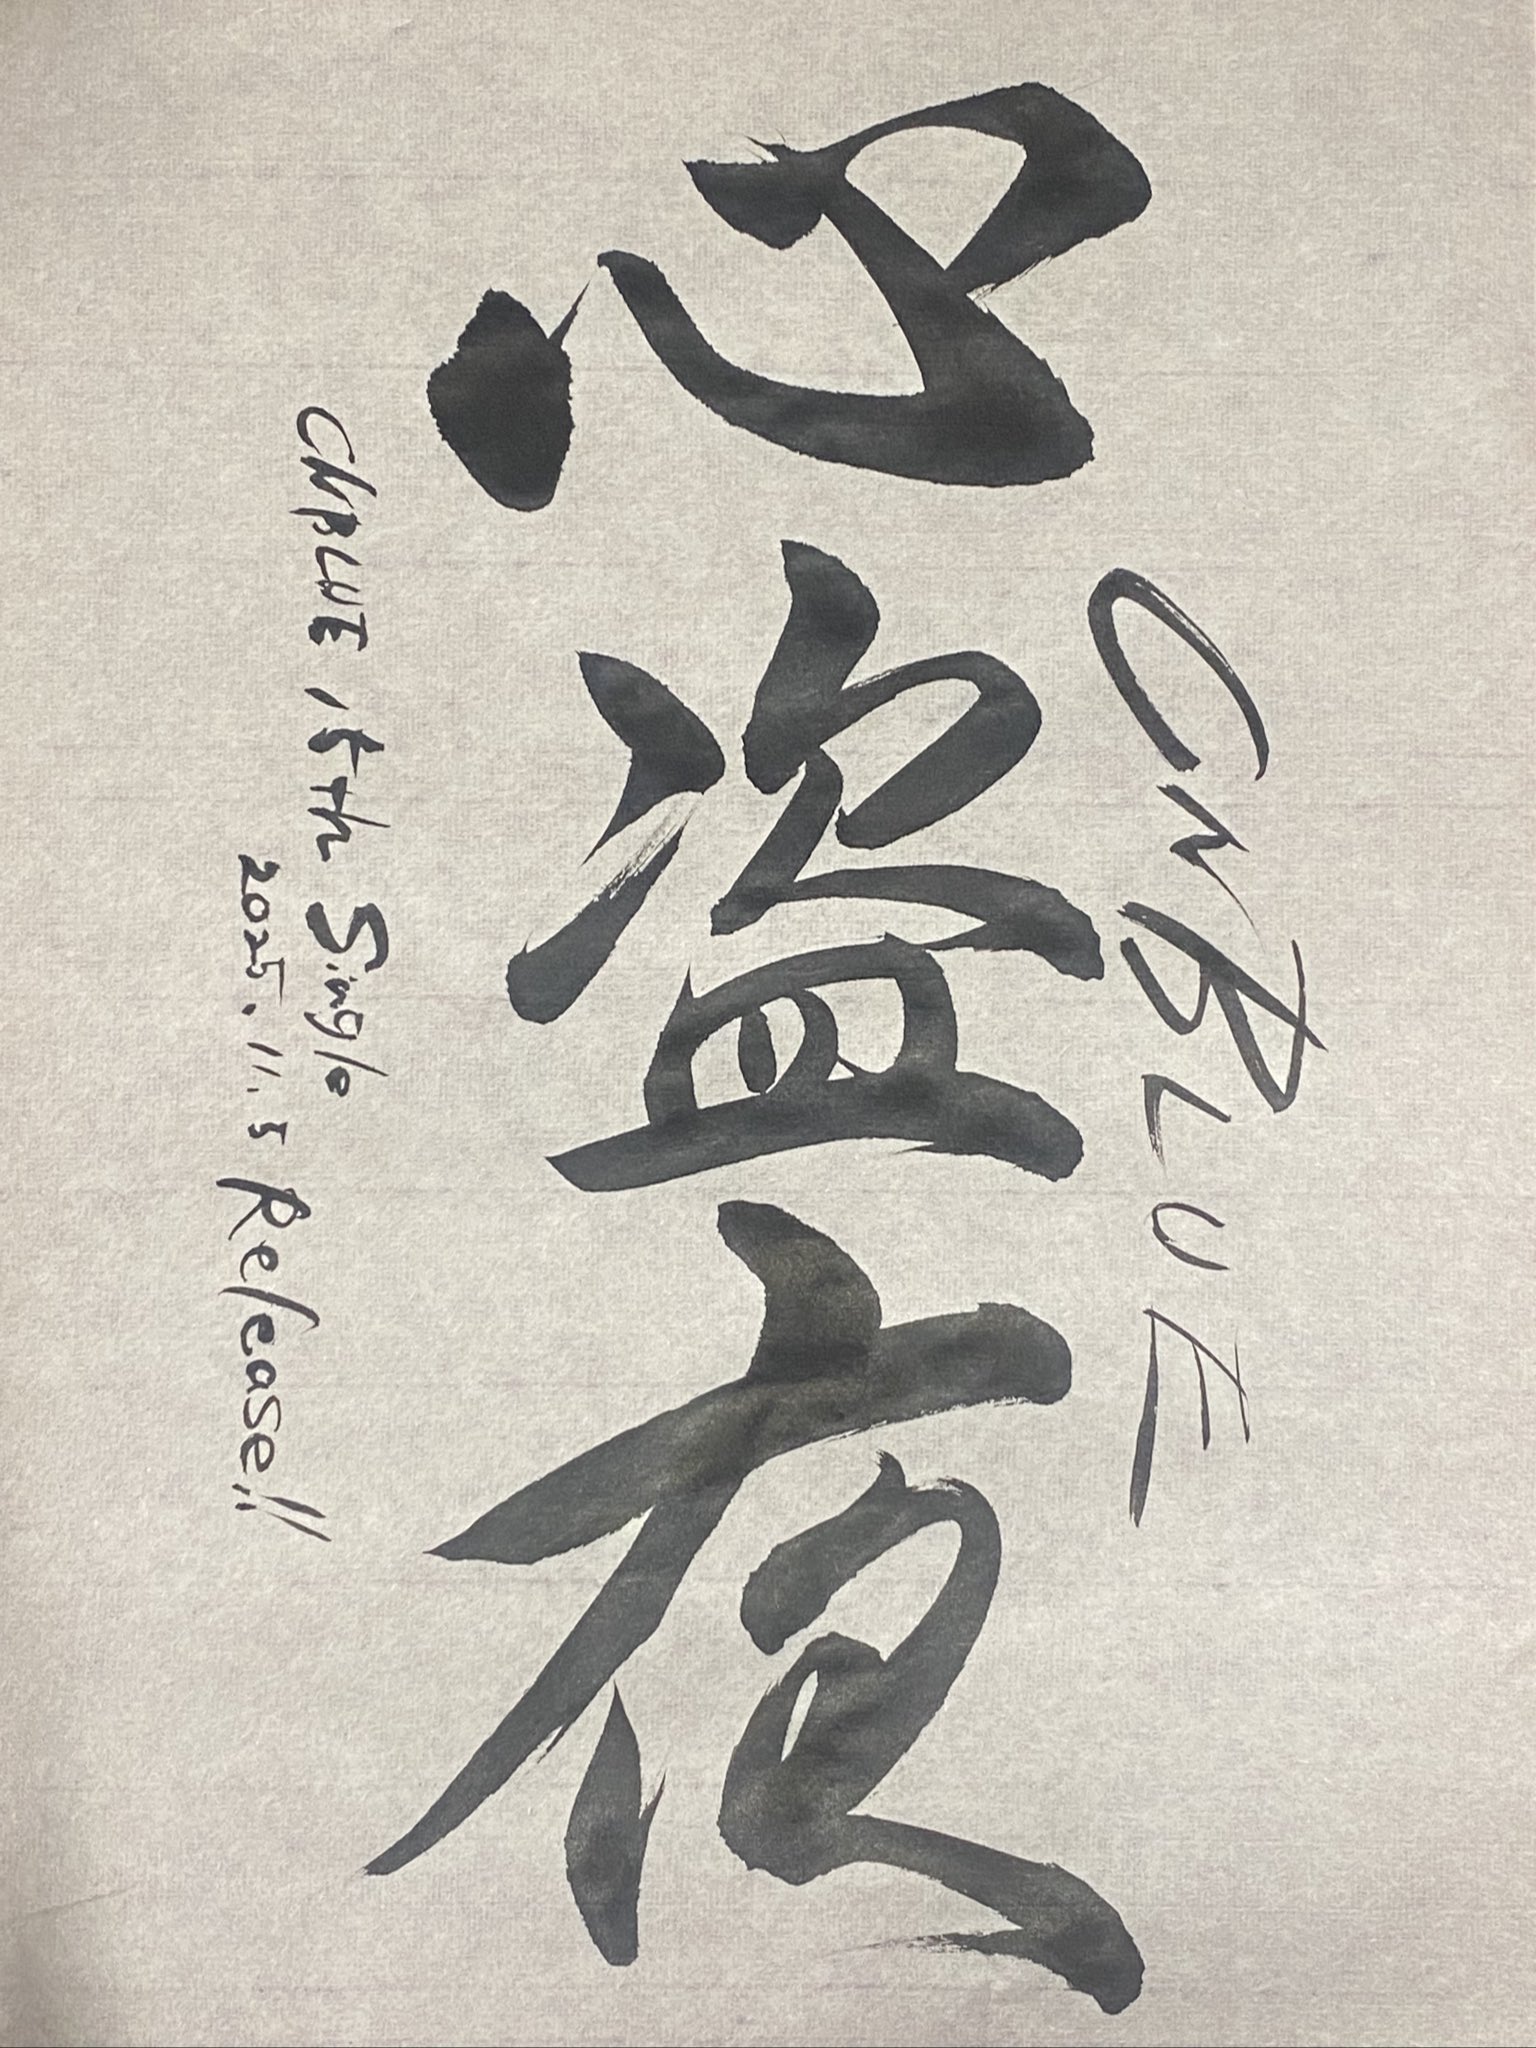 CNBLUE
心盗夜
CNBLUE 15th Single
2025.11.5 Release!!